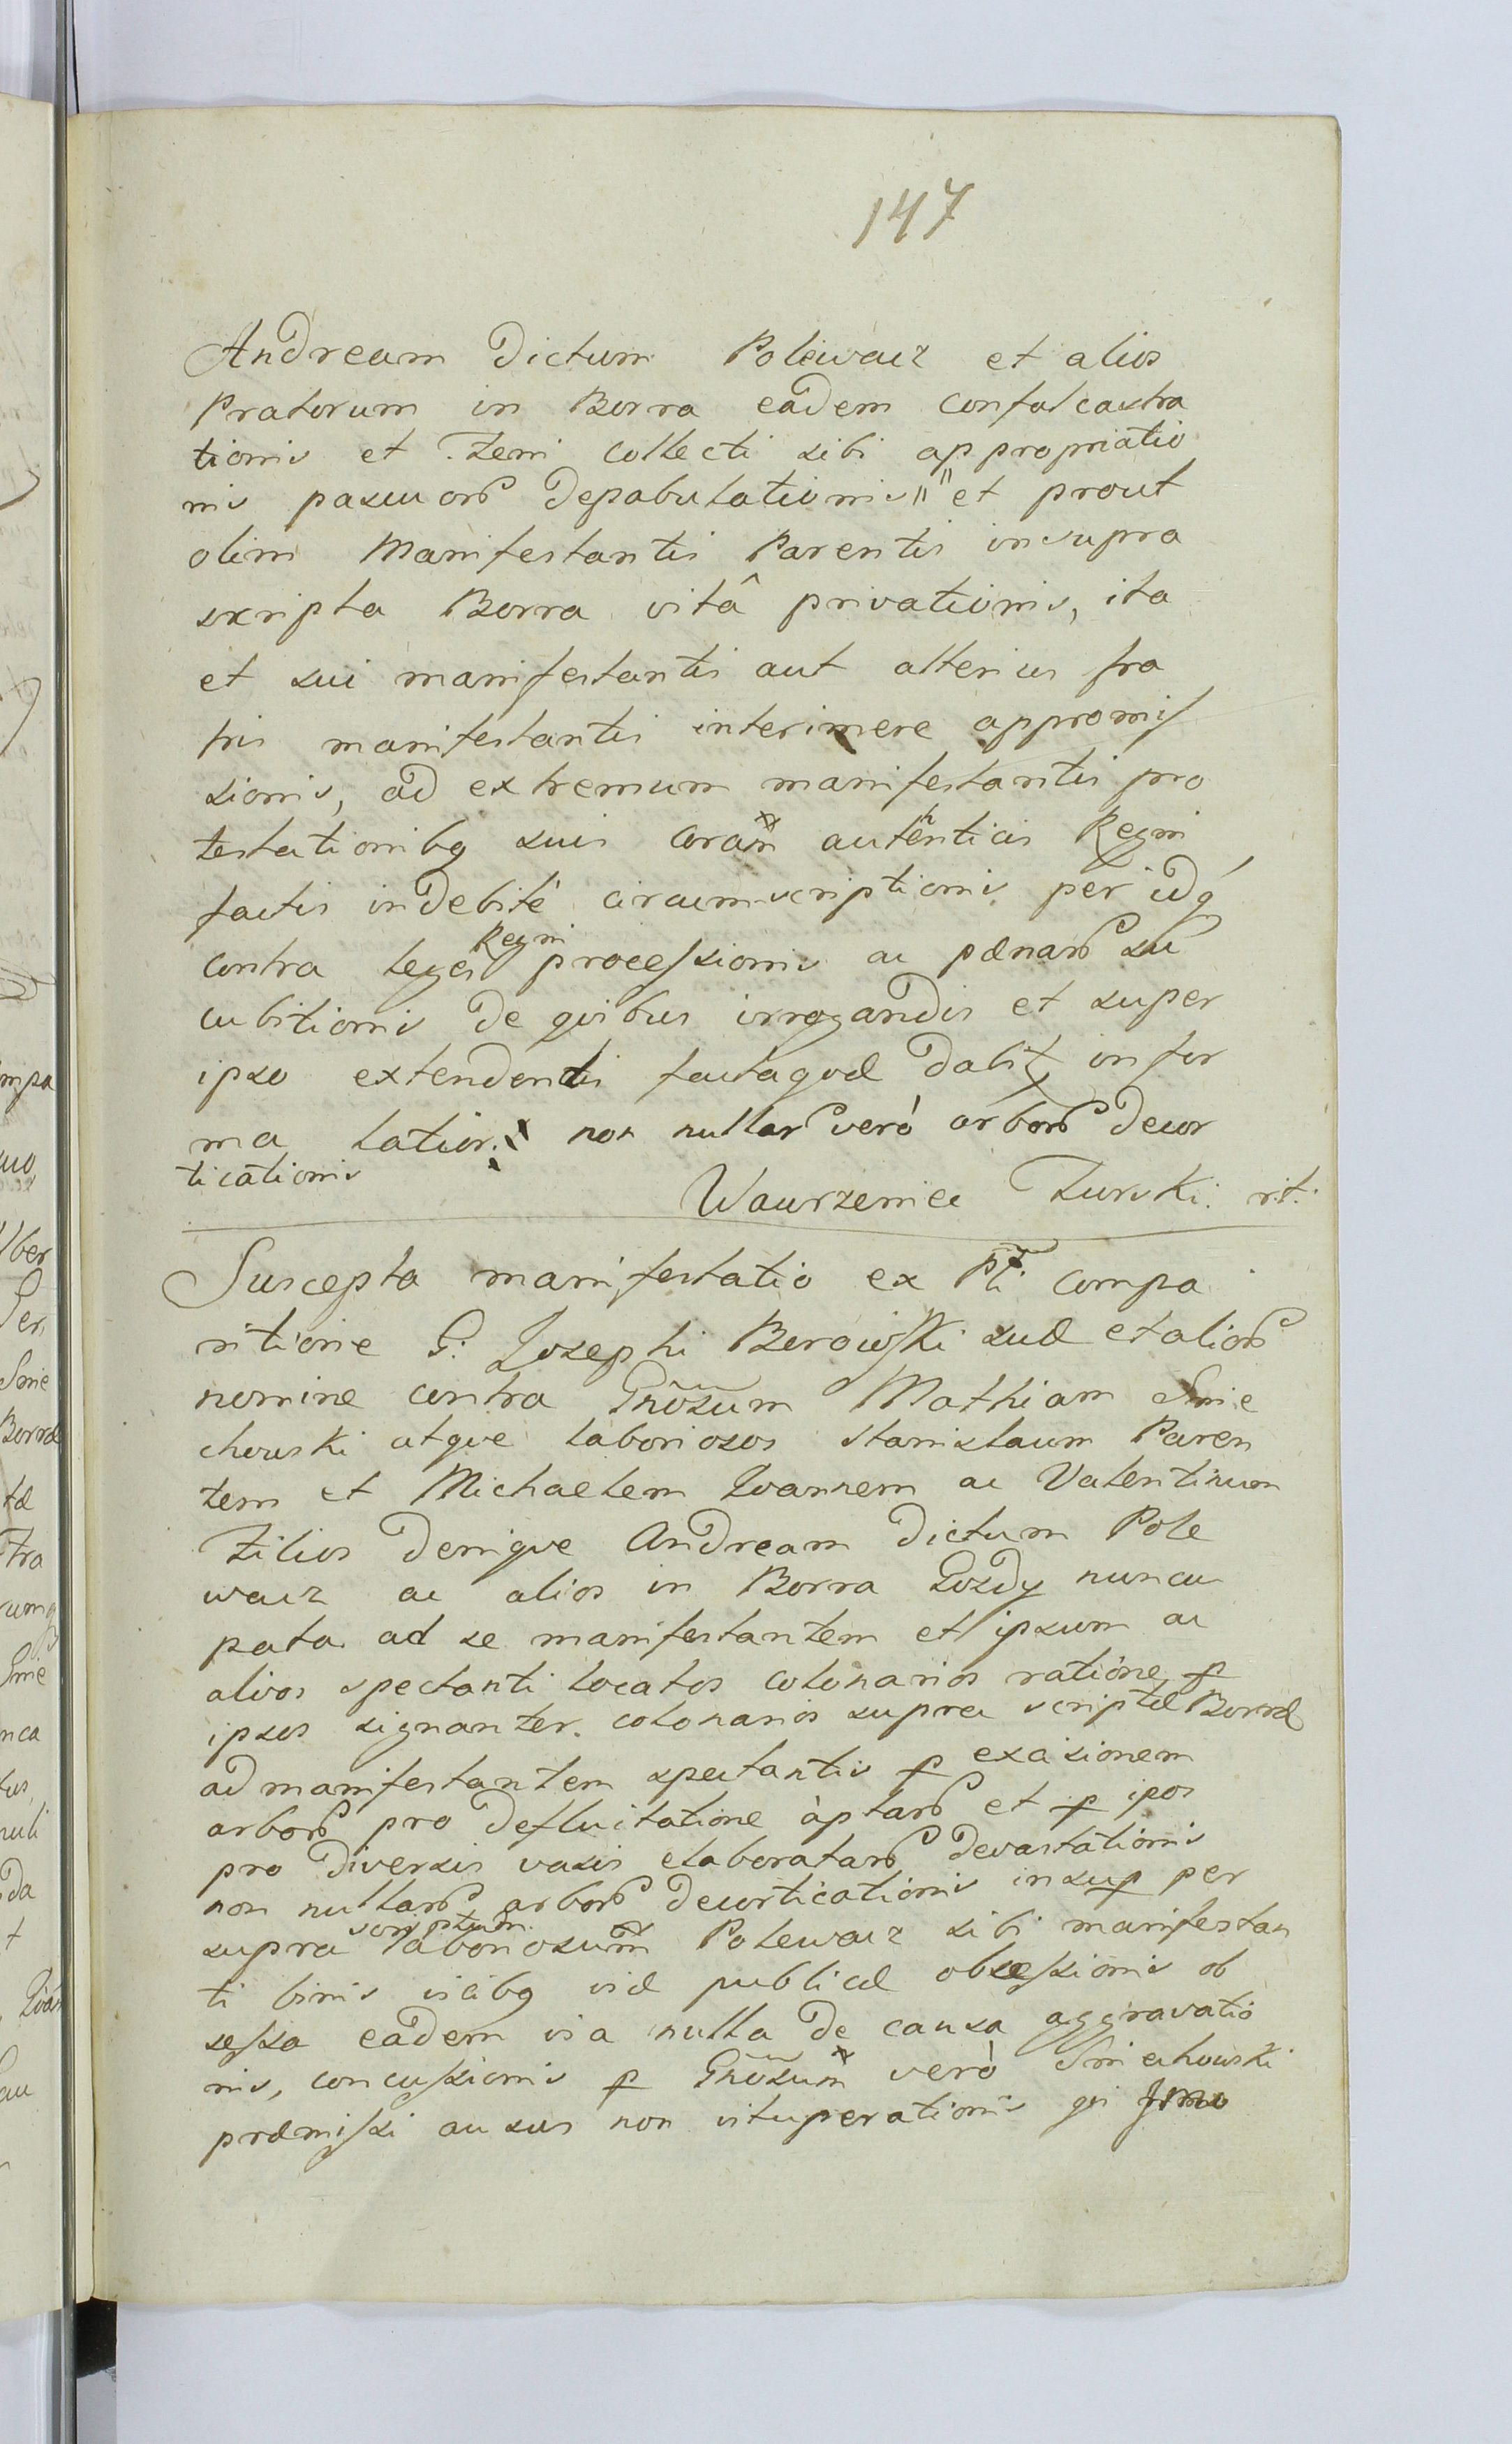 147
Andream Dictum Polewacz et alios
Pratorum in Borra eadem confalcastra
tionis et Feni collecti sibi appropriatio
nis pascuor̃ Depabulationis " et prout
olim Manifestantis Parentis in supra
scripta Borra vitâ privationis, ita
et sui manifestantis aut alterius fra
tris manifestantis interimere appromis
sionis, ad extremum manifestantis pro
testationibq suis coram autenticis Regni
factis indebitè circumscriptionis per idq
contra leges Regni processionis ac pænar̃ su
cubitionis De quibus irrogandis et super
ipso extendendis factaqæ Dabit in for
ma latior. non nullar̃ verò arbor̃ Decor
ticationis
Wawrzeniec Turski. rit.
Suscepta manifestatio ex Pti compa
ritione G. Josephi Berowski suæ et alior̃
nomine contra Gñosum Mathiam Smie
chowski atque laboriosos Stanislaum Paren
tem et Michaelem Ioannem ac Valentinum
Filios Denique Andream Dictum Pole
wacz ac alios in Borra Gozdy nuncu
pata ad se manifestantem et ipsum ac
alios spectanti locatos colonarios ratione, p
ipsos signanter. colonarios supra scriptæ Borræ
ad manifestantem spectantis p excisionem
arbor̃ pro Defluitatione aptar̃ et p ipos
pro Diversis vasis elaboratar̃ Devastationis
non nullar̃ arbor̃ Decorticationis insup per
supra scriptum laboriosum Polewacz sibi manifestan
ti binis vicibq viæ publicæ obsessionis ob
sessa eadem via nulla De causa aggravatio
nis, concussionis p Gñosum verò Smiechowski
præmissi ausus non vituperationis qui